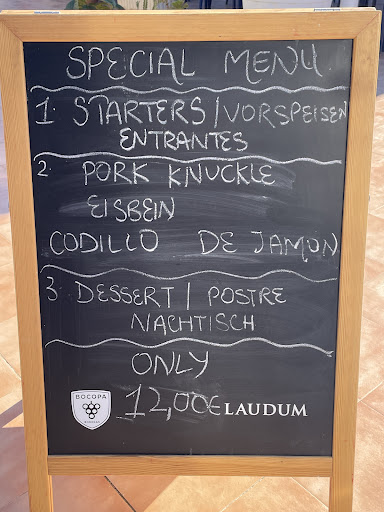 SPECIAL MENU
1. STARTERS / VORSPEISEN
ENTRANTES
2. PORK KNUCKLE
EISBEIN
CODILLO DE JAMON
3. DESSERT / POSTRE
NACHTISCH
ONLY
12,00€
BOCOPA
LAUDUM